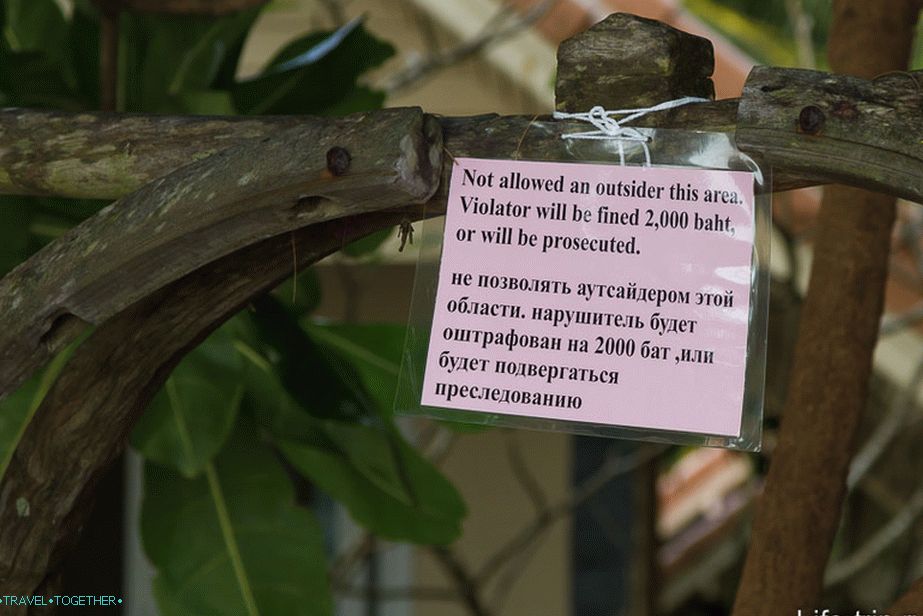 Not allowed an outsider this area.
Violator will be fined 2,000 baht,
or will be prosecuted.
не позволять аутсайдером этой
области. нарушитель будет
оштрафован на 2000 бат ,или
будет подвергаться
преследованию
•TRAVEL•TOGETHER•